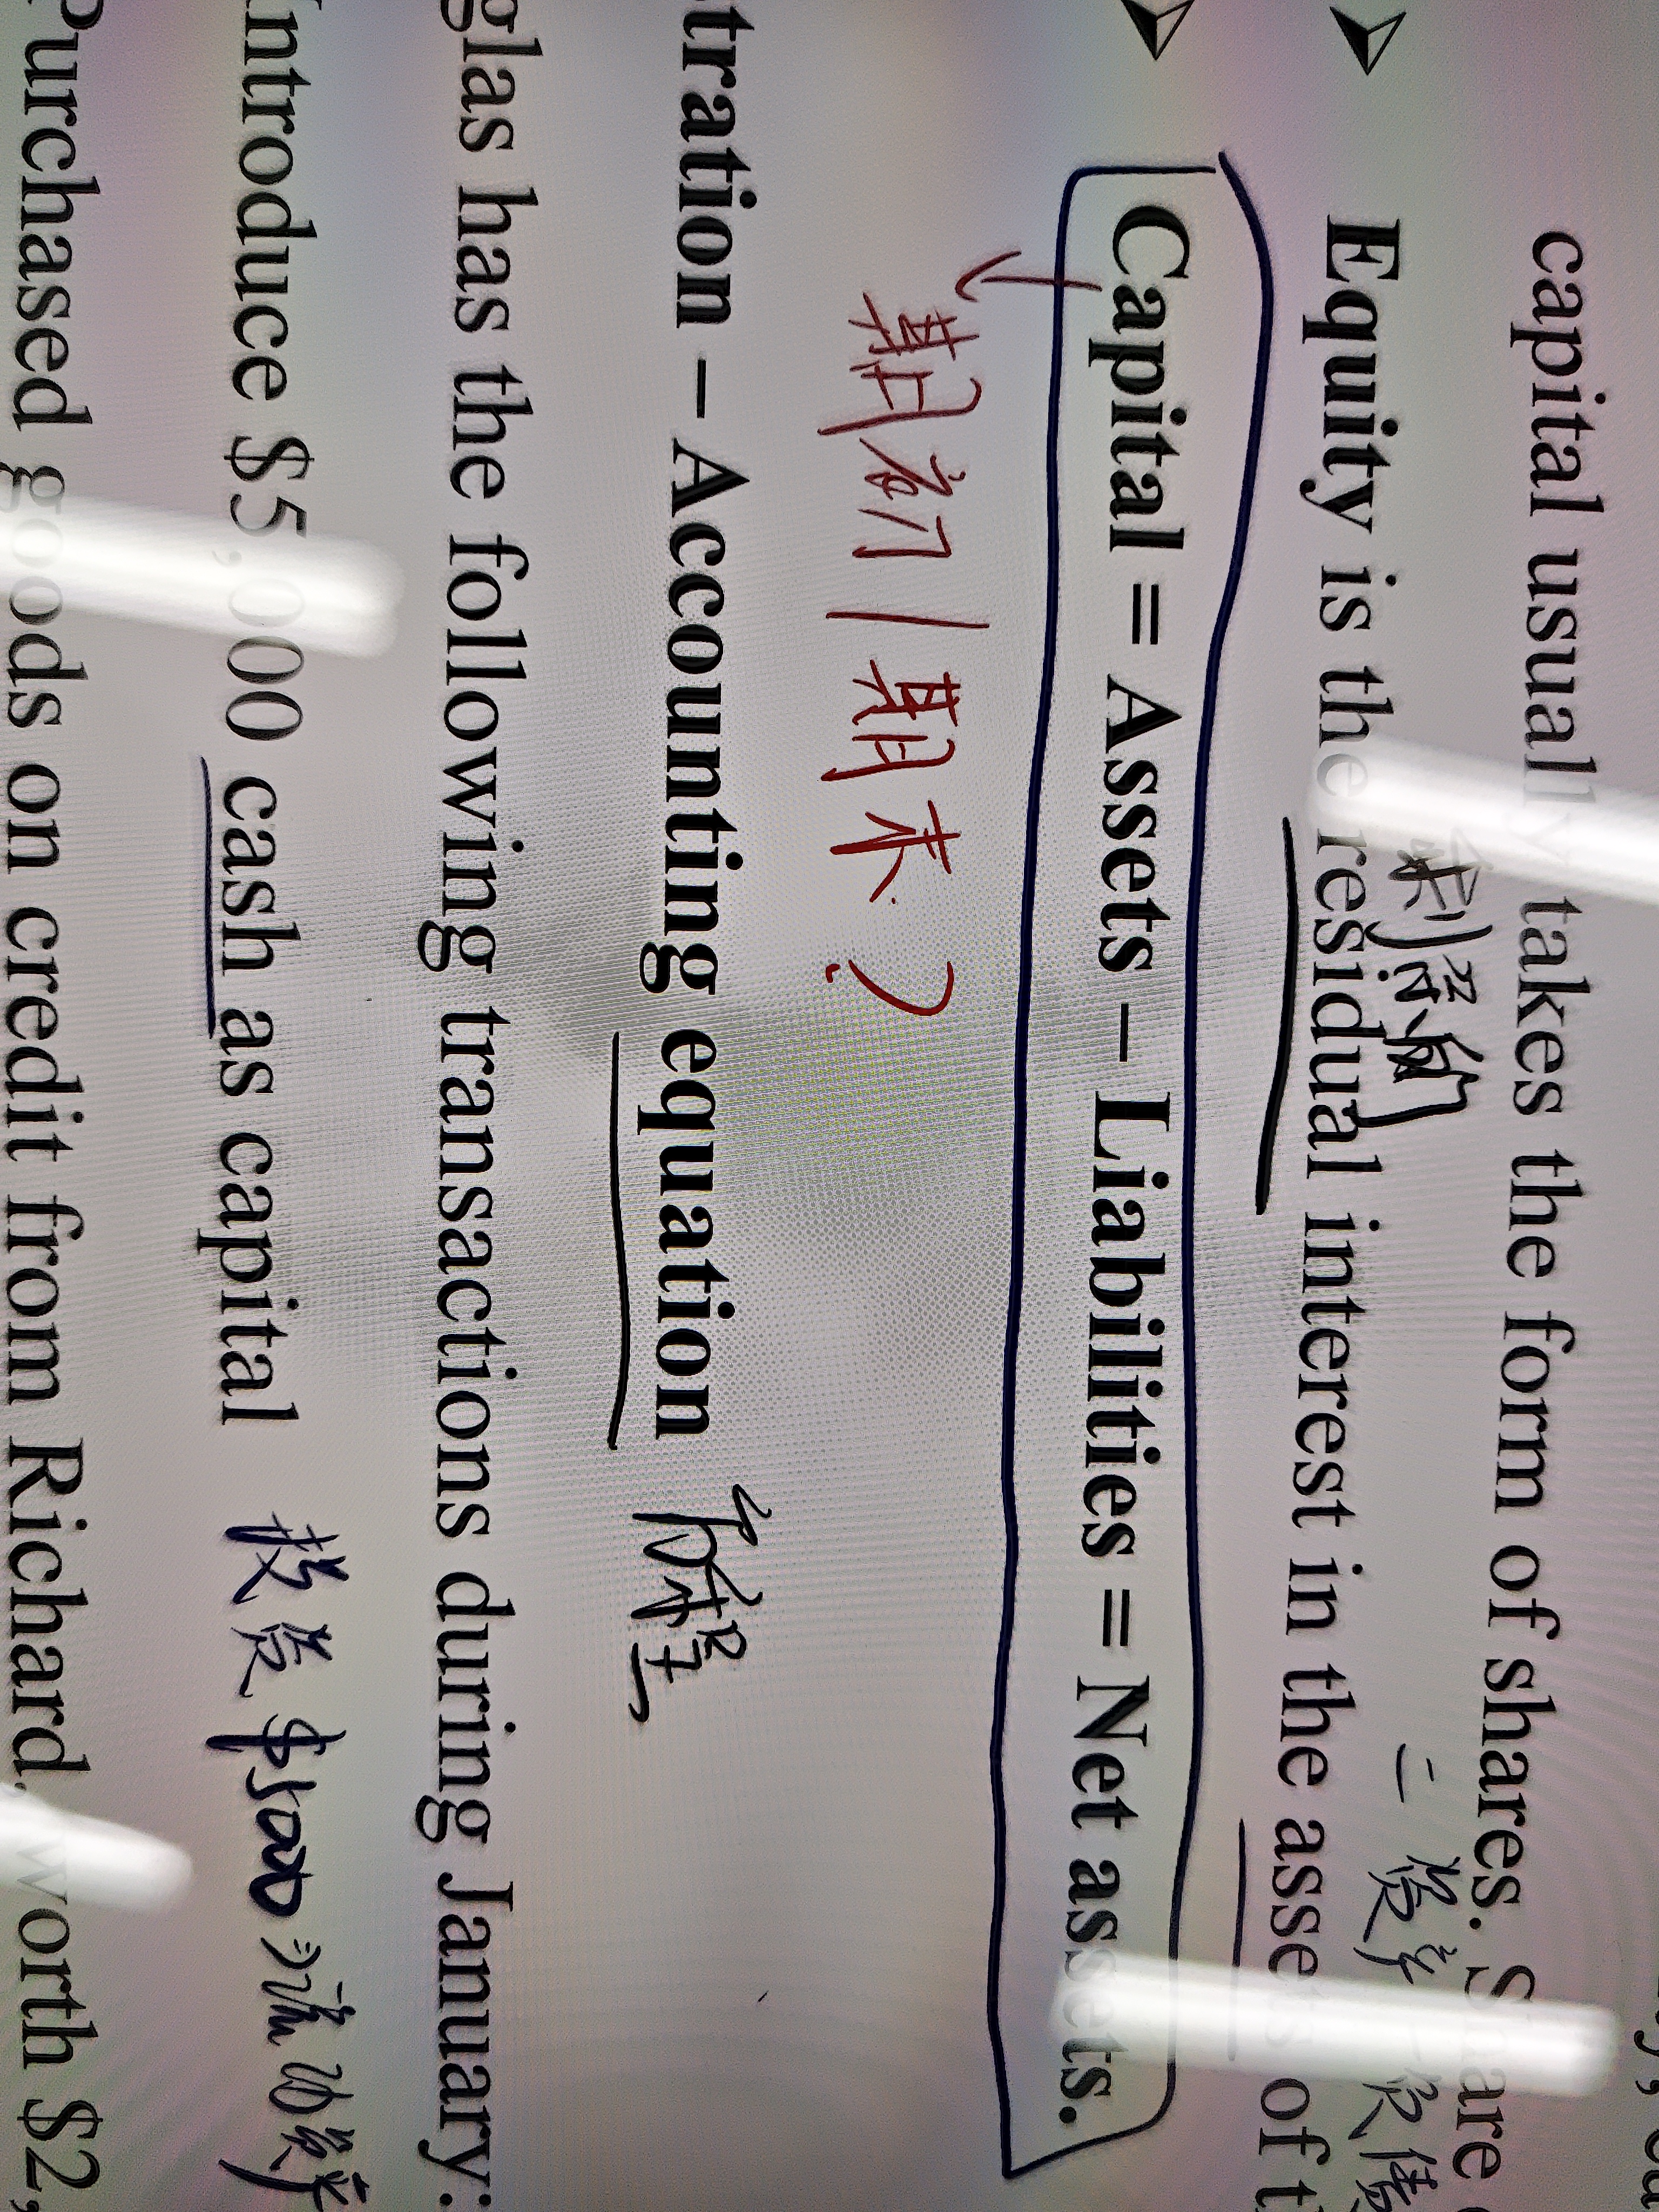 capital usually takes the form of shares. Share
剩餘的
Equity is the residual interest in the assets of
Capital = Assets – Liabilities = Net assets.
期初 | 期末?
tration – Accounting equation
glas has the following transactions during January:
ntroduce $5,000 cash as capital 投資 $5000 流动資
Purchased goods on credit from Richard, worth $2,